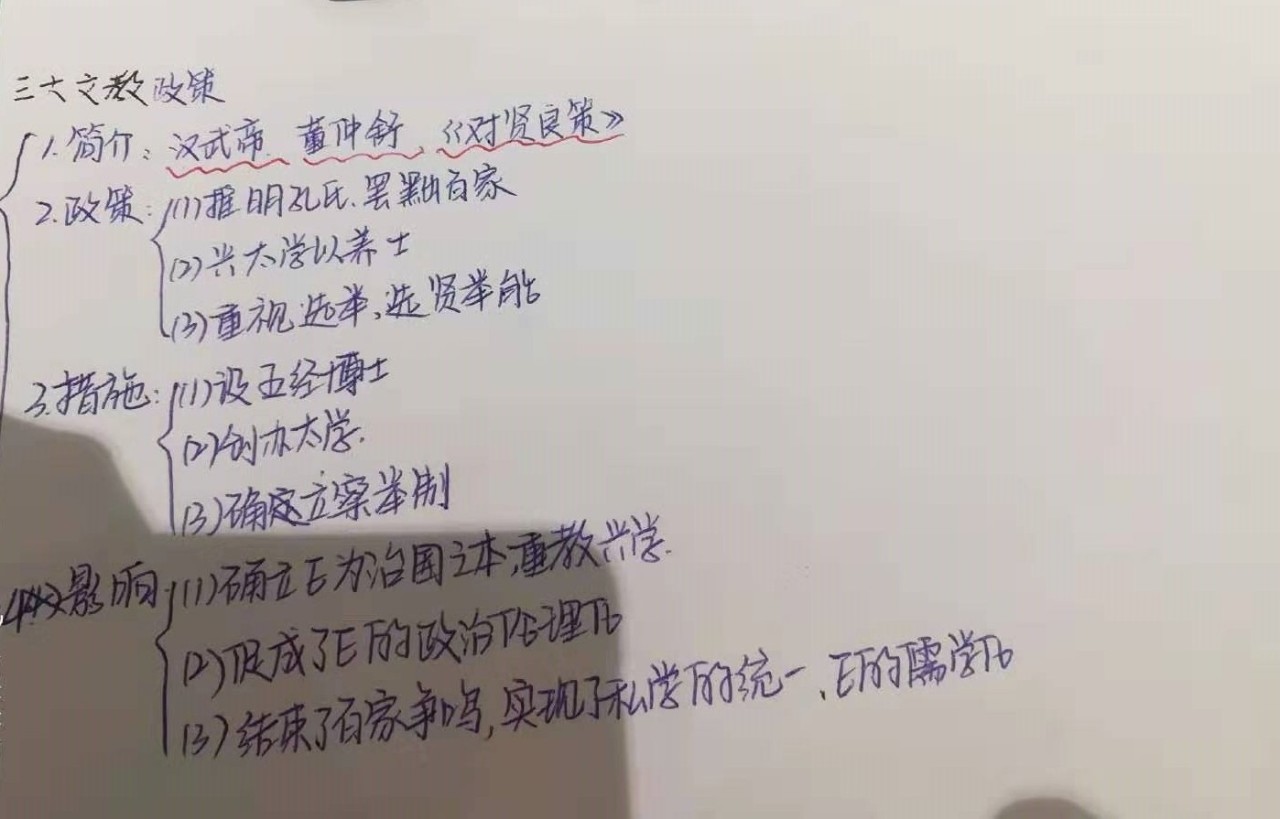 三大文教政策
1.简介：汉武帝、董仲舒、《对贤良策》
2.政策：(1)推明孔氏、罢黜百家
(2)兴太学以养士
(3)重视选举,选贤举能
3.措施：(1)设五经博士
(2)创办太学.
(3)确定立察举制
4影响(1)确立E为治国之本,重教兴学.
(2)促成了E的政治伦理化
(3)结束了百家争鸣,实现了私学的统一、E的儒学化